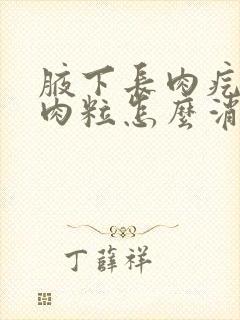 腋下長肉疙
肉粒怎麼消
丁薛祥